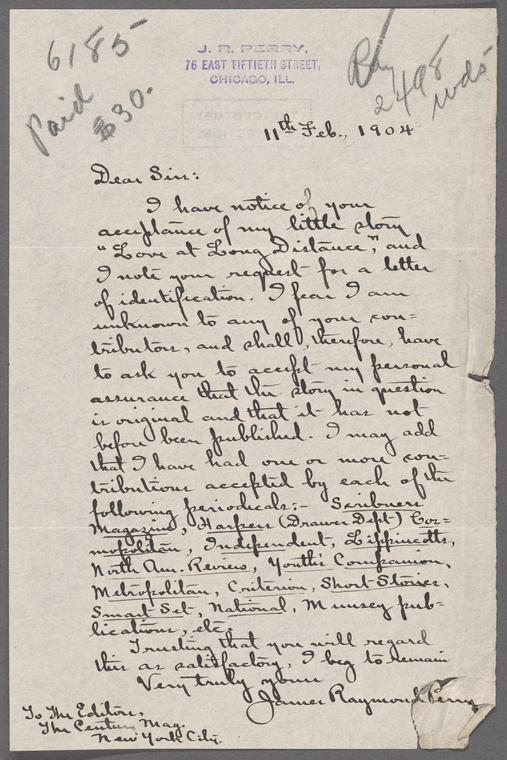 6185
Paid
$30.
J. R. PERRY,
76 EAST FIFTIETH STREET,
CHICAGO, ILL.
2498
wds
11th Feb., 1904
Dear Sirs:
I have notice of your
acceptance of my little story
"Love at Long Distance", and
I note your request for a letter
of identification. I fear I am
unknown to any of your con=
tributors, and shall, therefore, have
to ask you to accept my personal
assurance that the story in question
is original and that it has not
before been published. I may add
that I have had one or more con-
tributions accepted by each of the
following periodicals:- Scribners
Magazine, Harpers (Drawer Dept) Cos=
mopolitan, Independent, Lippincotts,
North Am. Review, Youth's Companion,
Metropolitan, Criterion, Short Stories,
Smart Set, National, Munsey pub-
lications, etc.
Trusting that you will regard
this as satisfactory, I beg to remain
Very truly yours
James Raymond Perry
To The Editors,
The Century Mag.
New York City.